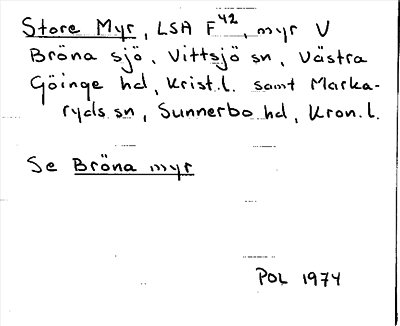 Store Myr, LSA F42, myr V
Bröna sjö, Vittsjö sn, Västra
Göinge hd, Krist.l. samt Marka-
ryds sn, Sunnerbo hd, Kron.l.
Se Bröna myr
POL 1974